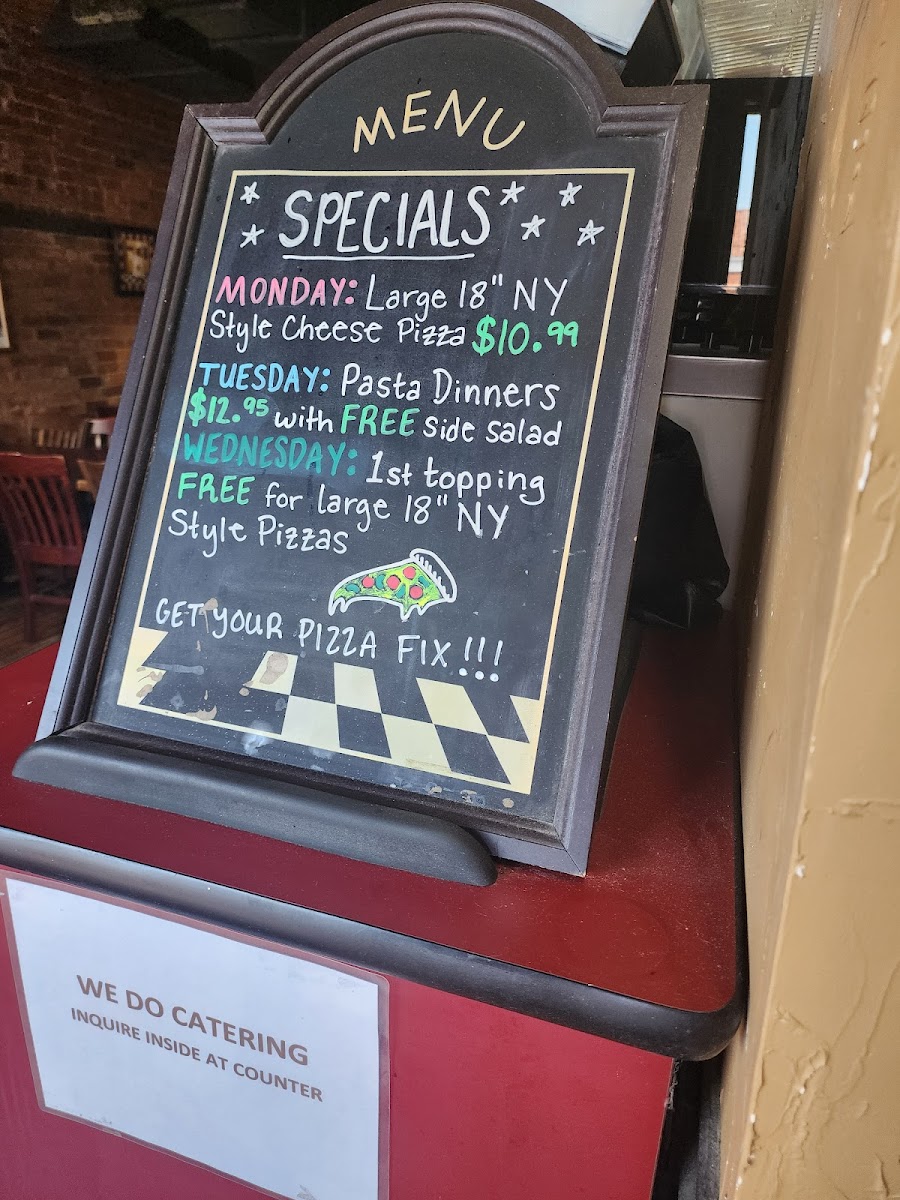 MENU
SPECIALS
MONDAY: Large 18" NY
Style Cheese Pizza $10.99
TUESDAY: Pasta Dinners
$12.95 with FREE side salad
WEDNESDAY: 1st topping
FREE for large 18" NY
Style Pizzas
GET YOUR PIZZA FIX!!!
WE DO CATERING
INQUIRE INSIDE AT COUNTER